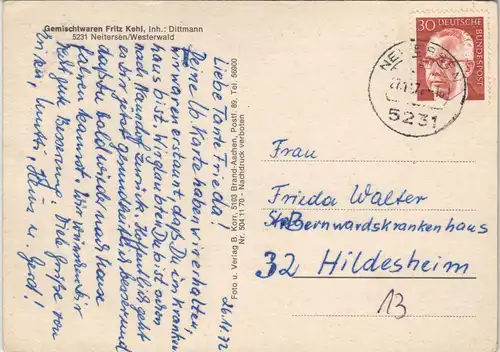 Gemischtwaren Fritz Kehl, Inh.: Dittmann
5231 Neitersen/Westerwald
Liebe Tante Frieda!
Deine lb. Karte haben wir erhalten,
wir waren erstaunt, daß Du im Kranken
haus bist. Wir glaubten Du bist schon
nach zurück. Hoffentlich geht
es Dir jetzt gesundheitlich besser und
daß Du bald wieder nach Hause
fahren kannst. Wir wünschen Dir
recht gute Besserung. Viele Grüße von
u. Gerd!
26.11.72
Foto u. Verlag B. Korr, 5103 Brand-Aachen, Postf. 89, Tel. 56900
Nr. 504 11 70 - Nachdruck verboten
30 DEUTSCHE
BUNDESPOST
5231
Frau
Frieda Walter
St. Bernwardskrankenhaus
32 Hildesheim
13